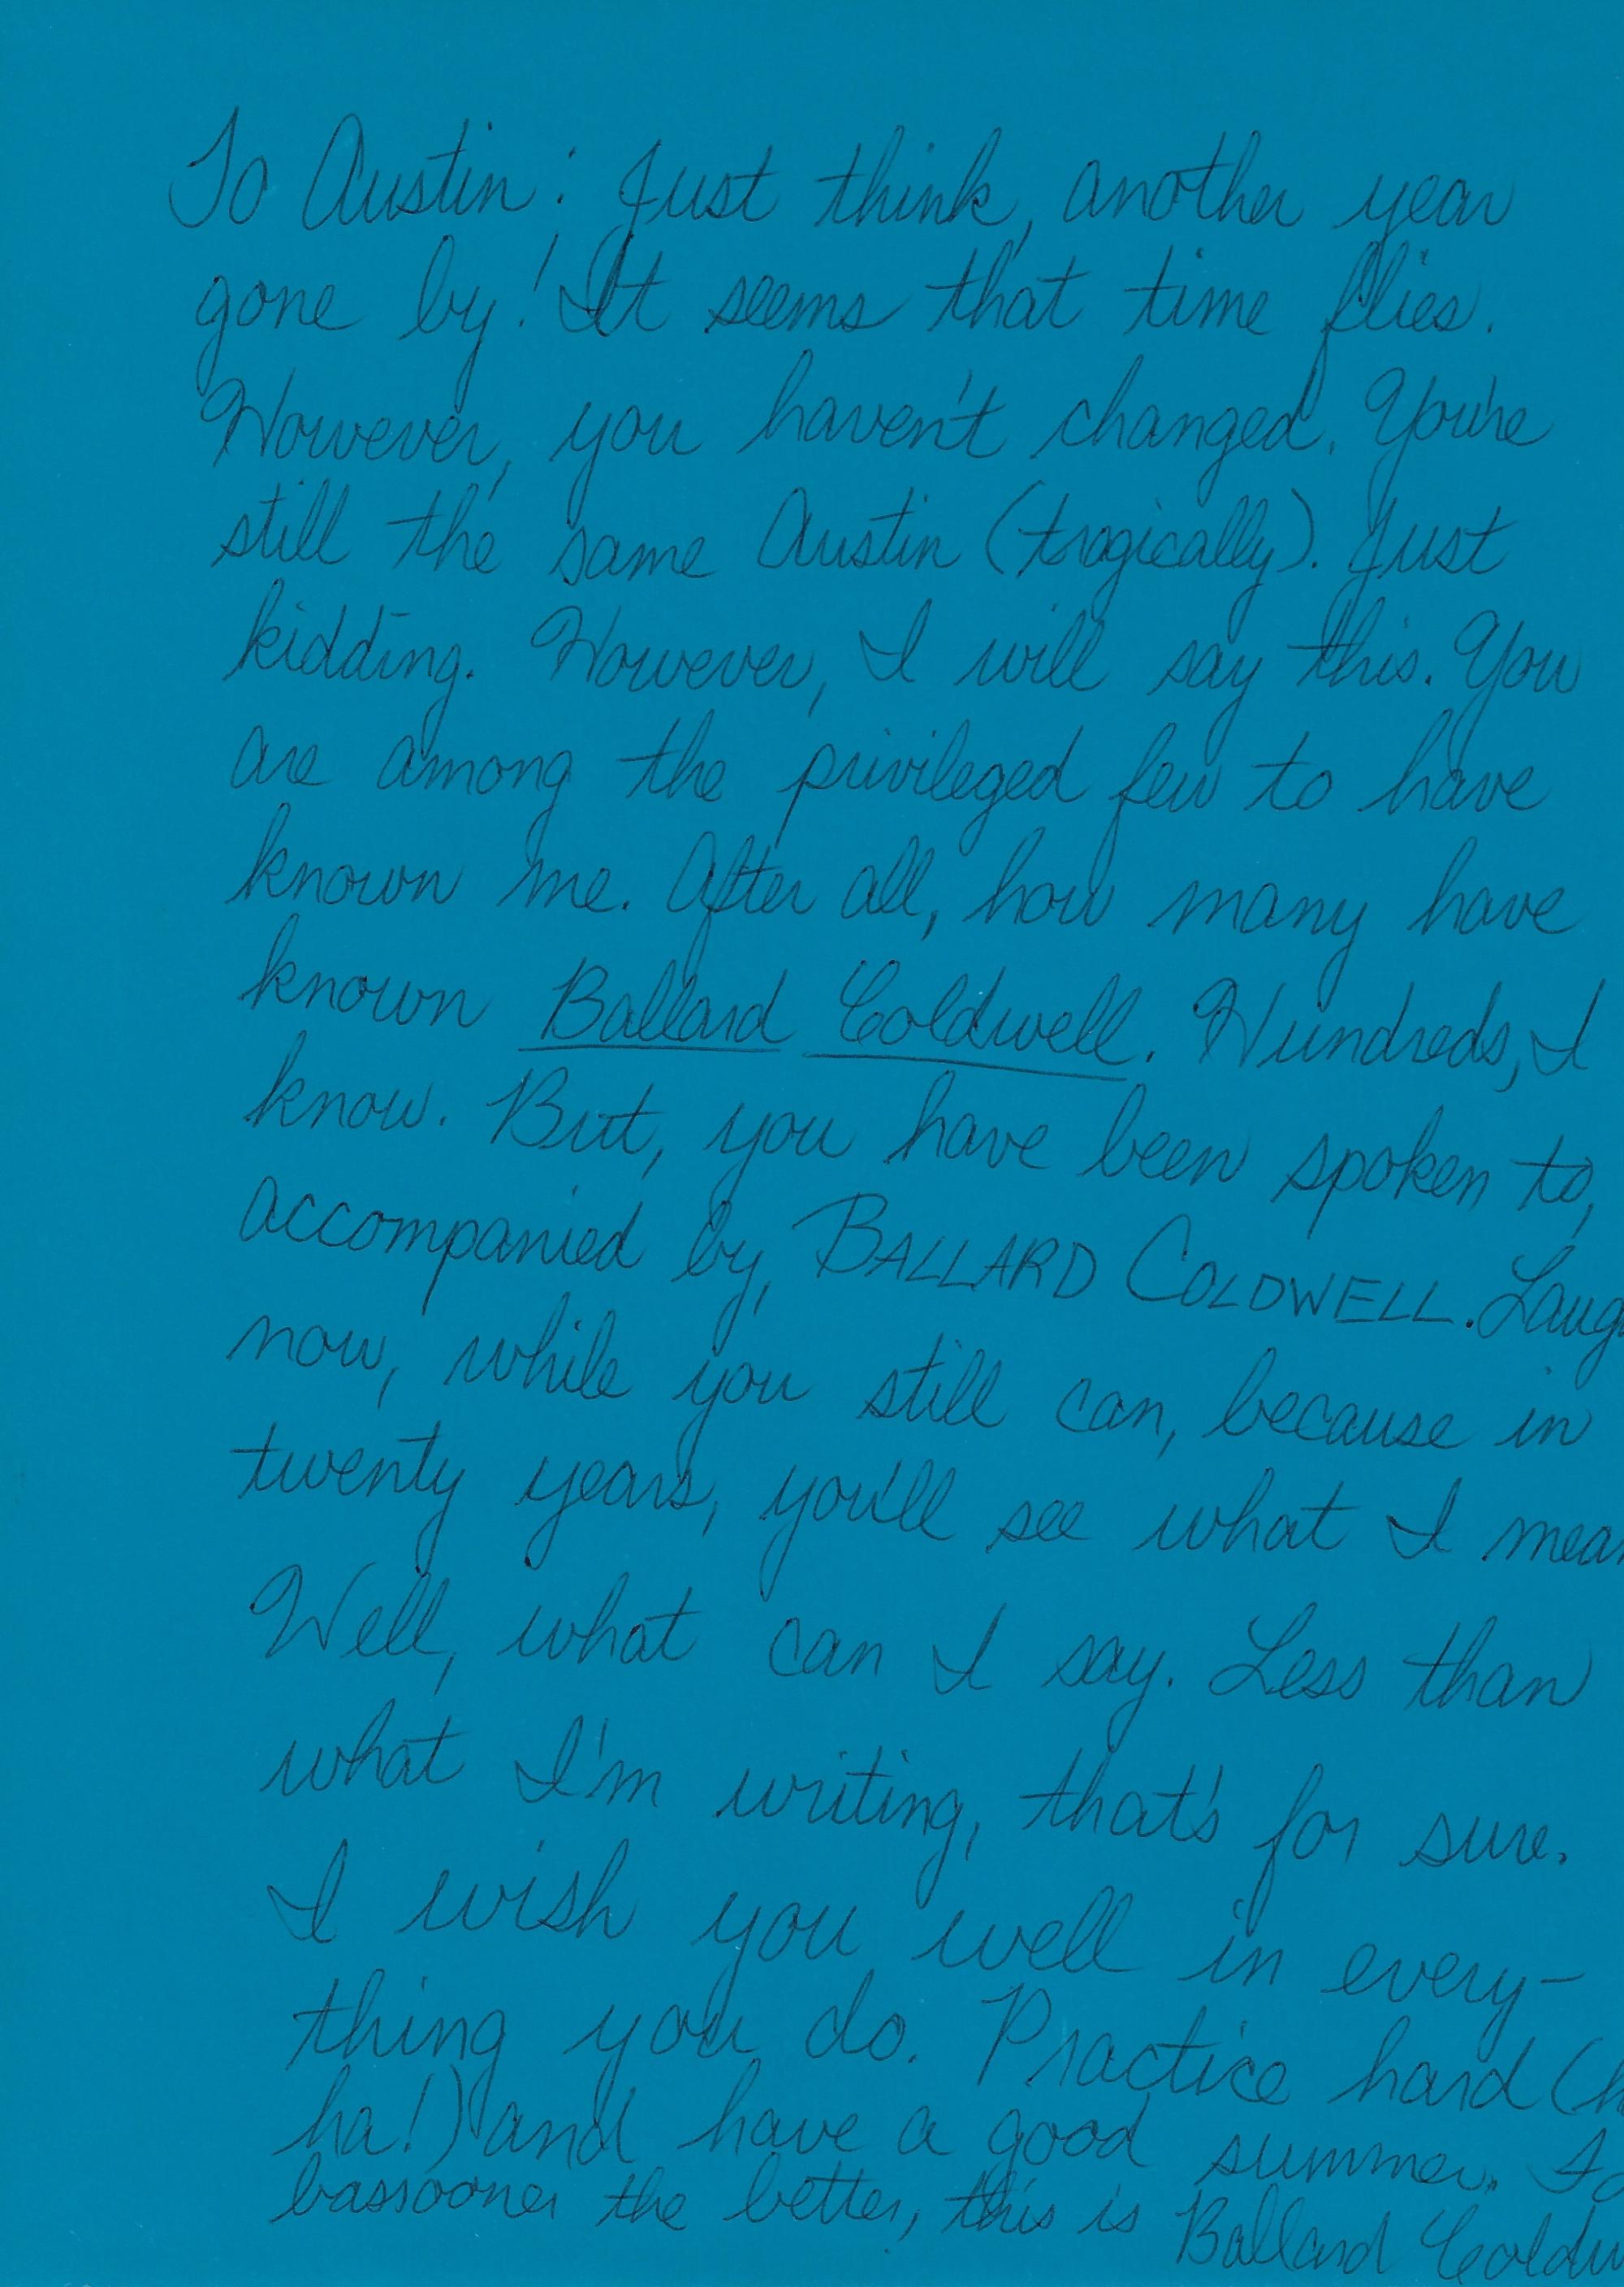 To Austin: Just think, another year
gone by! It seems that time flies.
However, you haven't changed. You're
still the same Austin (tragically). Just
kidding. However, I will say this. You
are among the privileged few to have
known me. After all, how many have
known Ballard Coldwell. Hundreds, I
know. But, you have been spoken to,
accompanied by, BALLARD COLDWELL. Laug
now, while you still can, because in
twenty years, you'll see what I mean
Well, what can I say. Less than
what I'm writing, that's for sure.
I wish you well in every-
thing you do. Practice hard (h
ha!) and have a good summer.
bassooner the better, this is Ballard Coldw